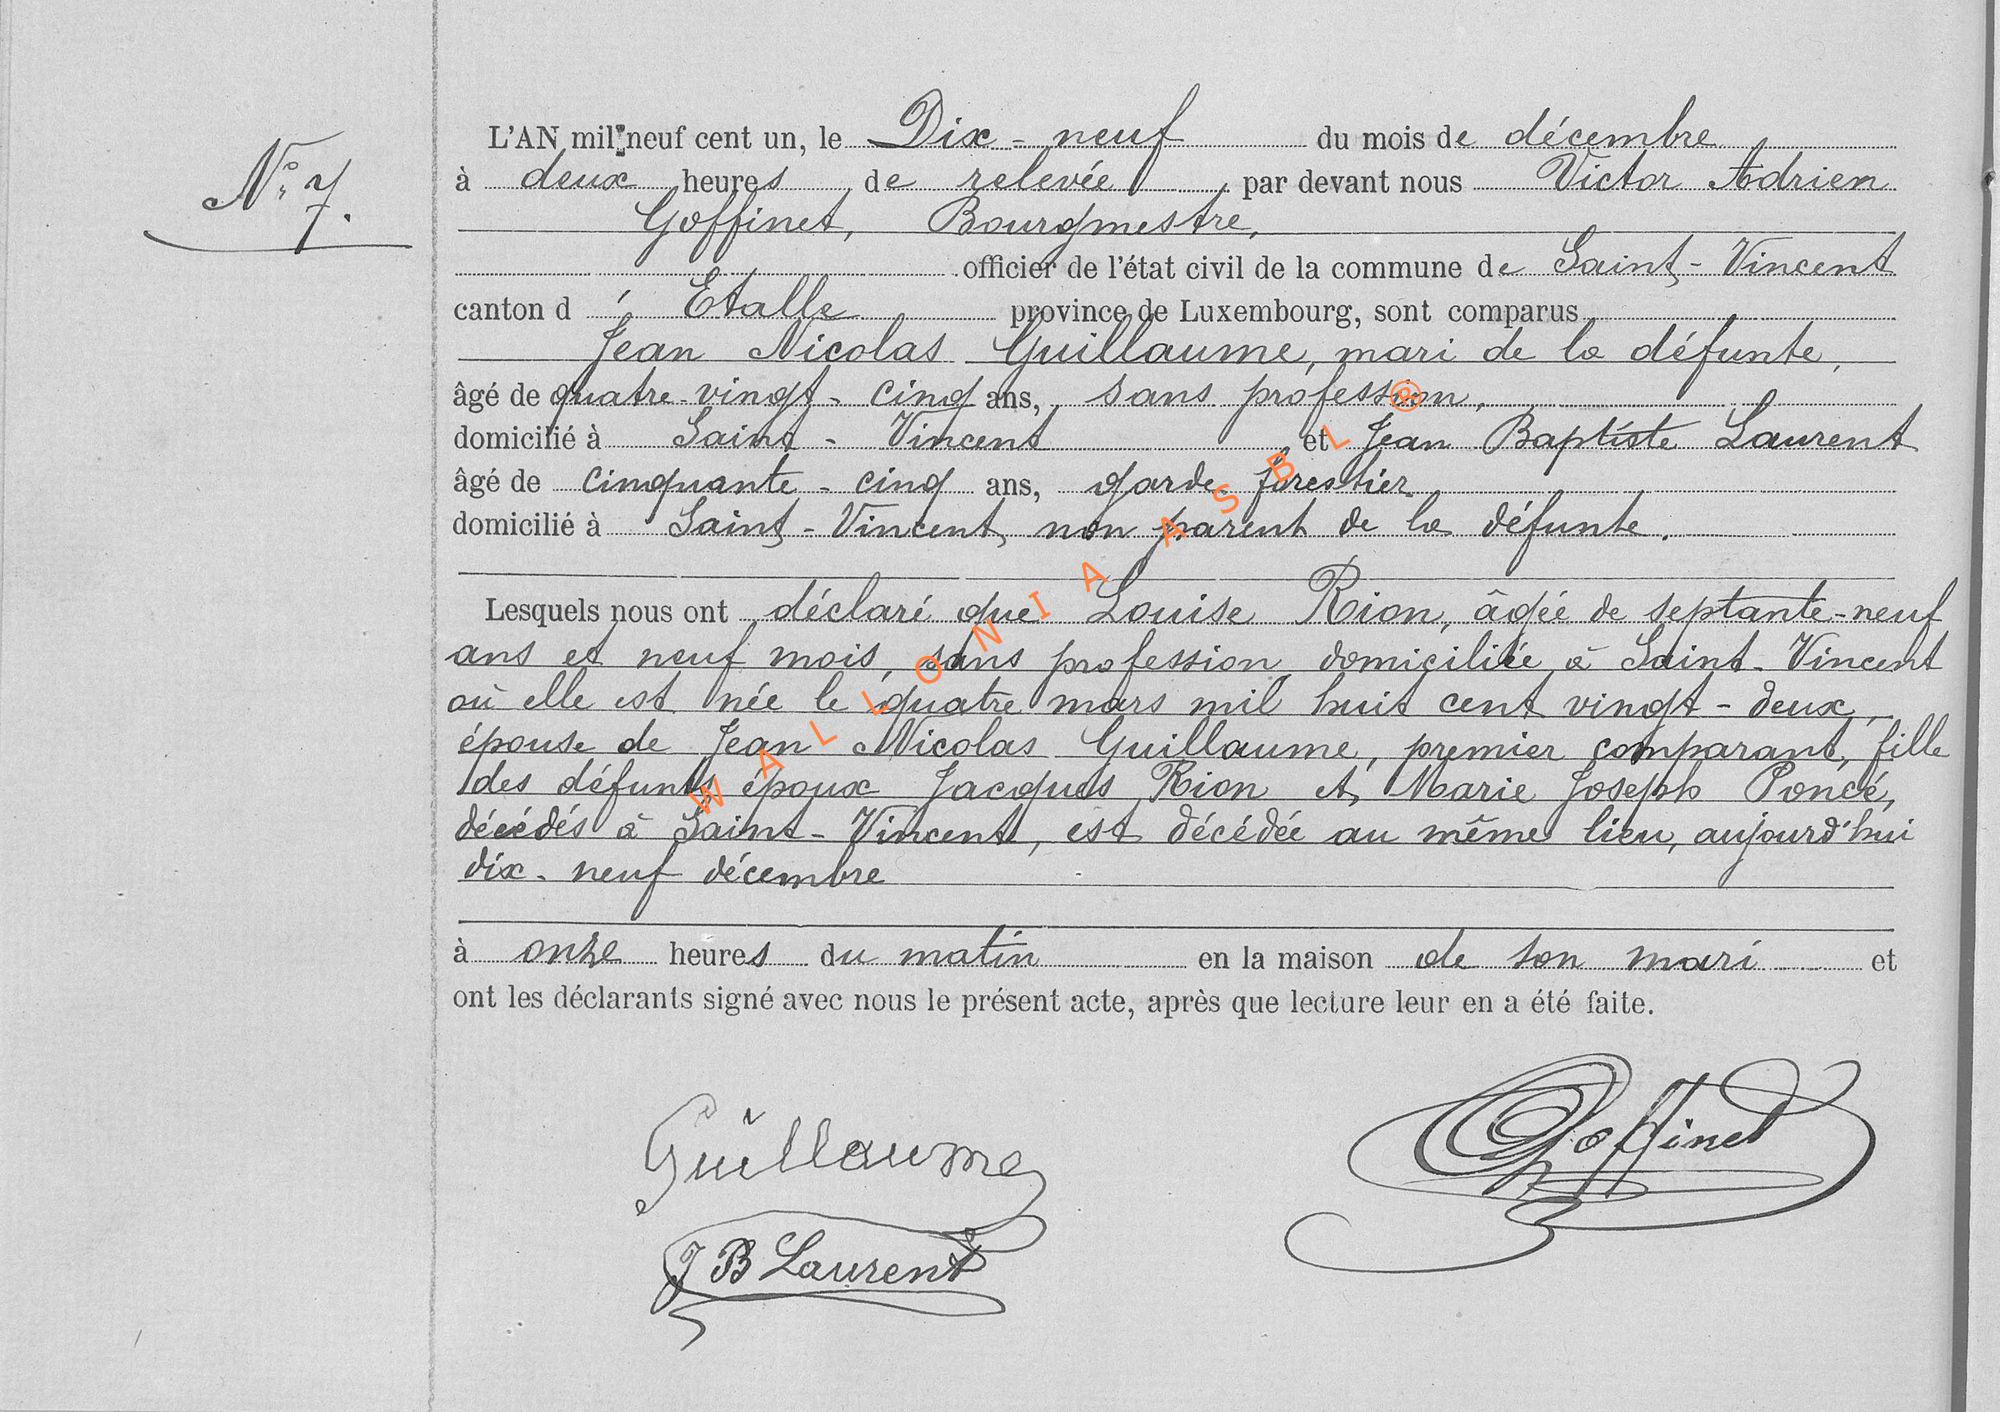 N° 7.
L'AN mil neuf cent un, le Dix-neuf du mois de décembre
à deux heures de relevée, par devant nous Victor Adrien
Goffinet, Bourgmestre,
officier de l'état civil de la commune de Saint-Vincent
canton d'Etalle province de Luxembourg, sont comparus
Jean Nicolas Guillaume, mari de la défunte,
âgé de quatre-vingt-cinq ans, sans profession,
domicilié à Saint-Vincent et Jean Baptiste Laurent
âgé de cinquante-cinq ans, garde forestier
domicilié à Saint-Vincent, non parent de la défunte.
Lesquels nous ont déclaré que Louise Rion, âgée de septante-neuf
ans et neuf mois, sans profession, domiciliée à Saint-Vincent
où elle est née le quatre mars mil huit cent vingt-deux,
épouse de Jean Nicolas Guillaume, premier comparant, fille
des défunts époux Jacques Rion et Marie Joseph Poncé,
décédés à Saint-Vincent, est décédée au même lieu, aujourd'hui
dix-neuf décembre
à onze heures du matin en la maison de son mari et
ont les déclarants signé avec nous le présent acte, après que lecture leur en a été faite.
Guillaume
Goffinet
J B Laurent
WALLONIA ASBL ®